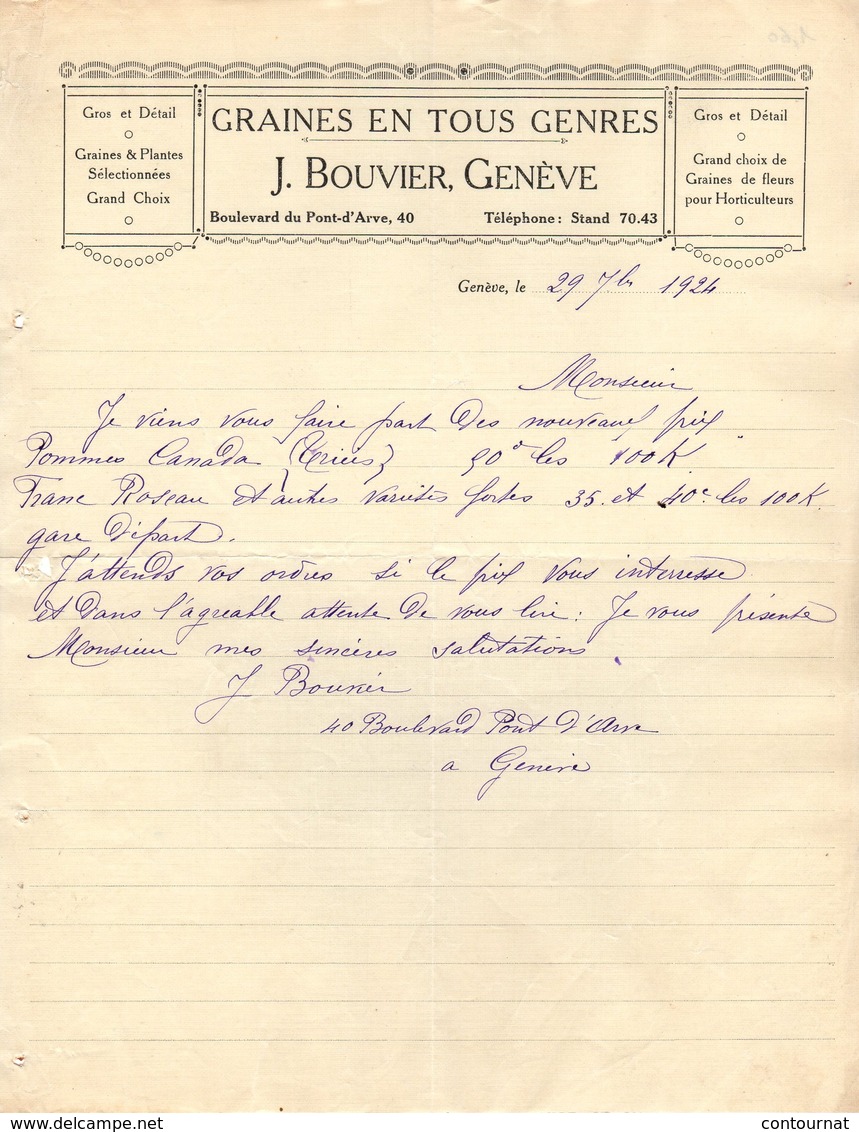 1,60
Gros et Détail
Graines & Plantes
Sélectionnées
Grand Choix
GRAINES EN TOUS GENRES
J. BOUVIER, GENÈVE
Boulevard du Pont-d'Arve, 40 Téléphone: Stand 70.43
Gros et Détail
Grand choix de
Graines de fleurs
pour Horticulteurs
Genève, le 29 7bre 1924
Monsieur
Je viens vous faire part des nouveaux prix
Pommes Canada (Triées) les 100K
Franc Roseau et autres varietés fortes 35. et 40c les 100K.
gare départ.
J'attends vos ordres si le prix vous interresse
et dans l'agreable attente de vous lire: Je vous présente
Monsieur mes sincères salutations
J Bouvier
40 Boulevard Pont d'Arve
a Genève
www.delcampe.net
contournat